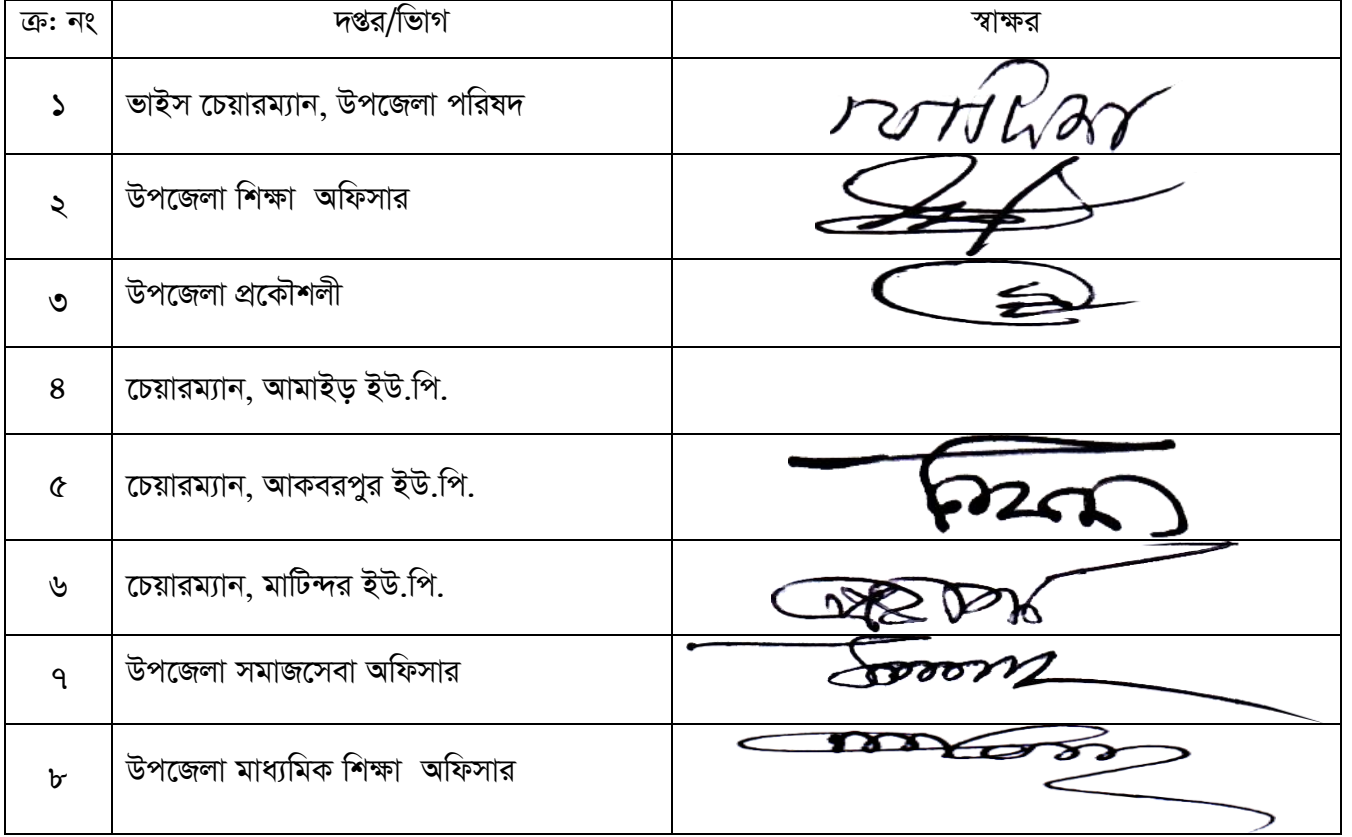 ক্র: নং দপ্তর/ভিাগ স্বাক্ষর
১ ভাইস চেয়ারম্যান, উপজেলা পরিষদ
২ উপজেলা শিক্ষা অফিসার
৩ উপজেলা প্রকৌশলী
৪ চেয়ারম্যান, আমাইড় ইউ.পি.
৫ চেয়ারম্যান, আকবরপুর ইউ.পি.
৬ চেয়ারম্যান, মাটিন্দর ইউ.পি.
৭ উপজেলা সমাজসেবা অফিসার
৮ উপজেলা মাধ্যমিক শিক্ষা অফিসার